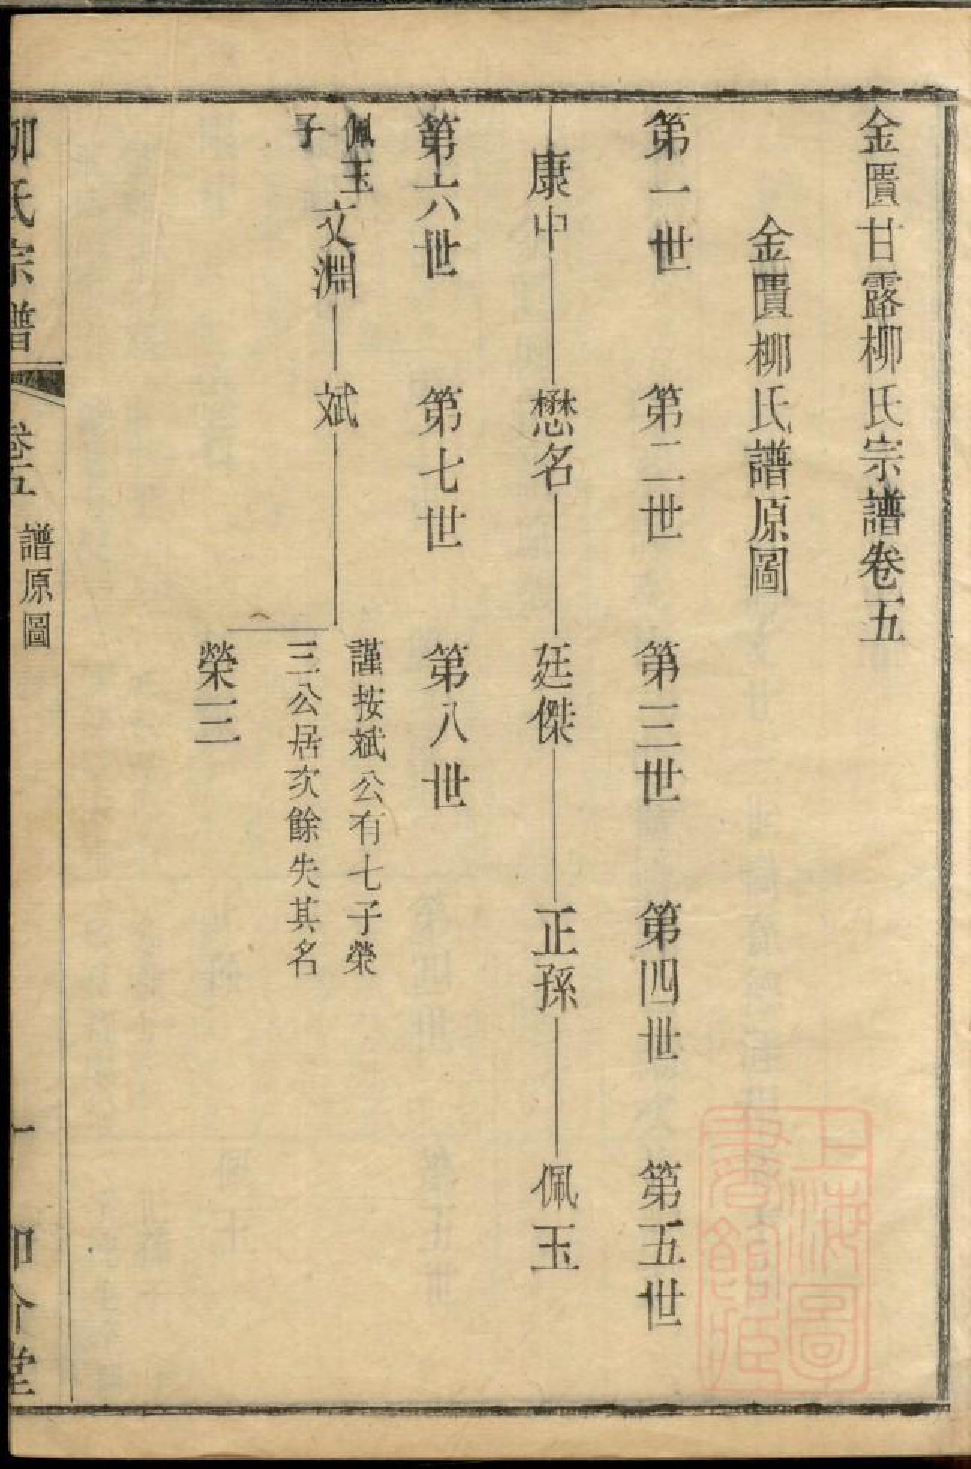 金匱甘露柳氏宗譜卷五
金匱柳氏譜原圖
第一世 第二世 第三世 第四世 第五世
康中 懋名 廷傑 正孫 佩玉
第六世 第七世 第八世
佩玉
子
文淵 斌
謹按斌公有七子榮
三公居次餘失其名
榮三
柳氏宗譜 卷五 譜原圖 一
上海圖
書館藏